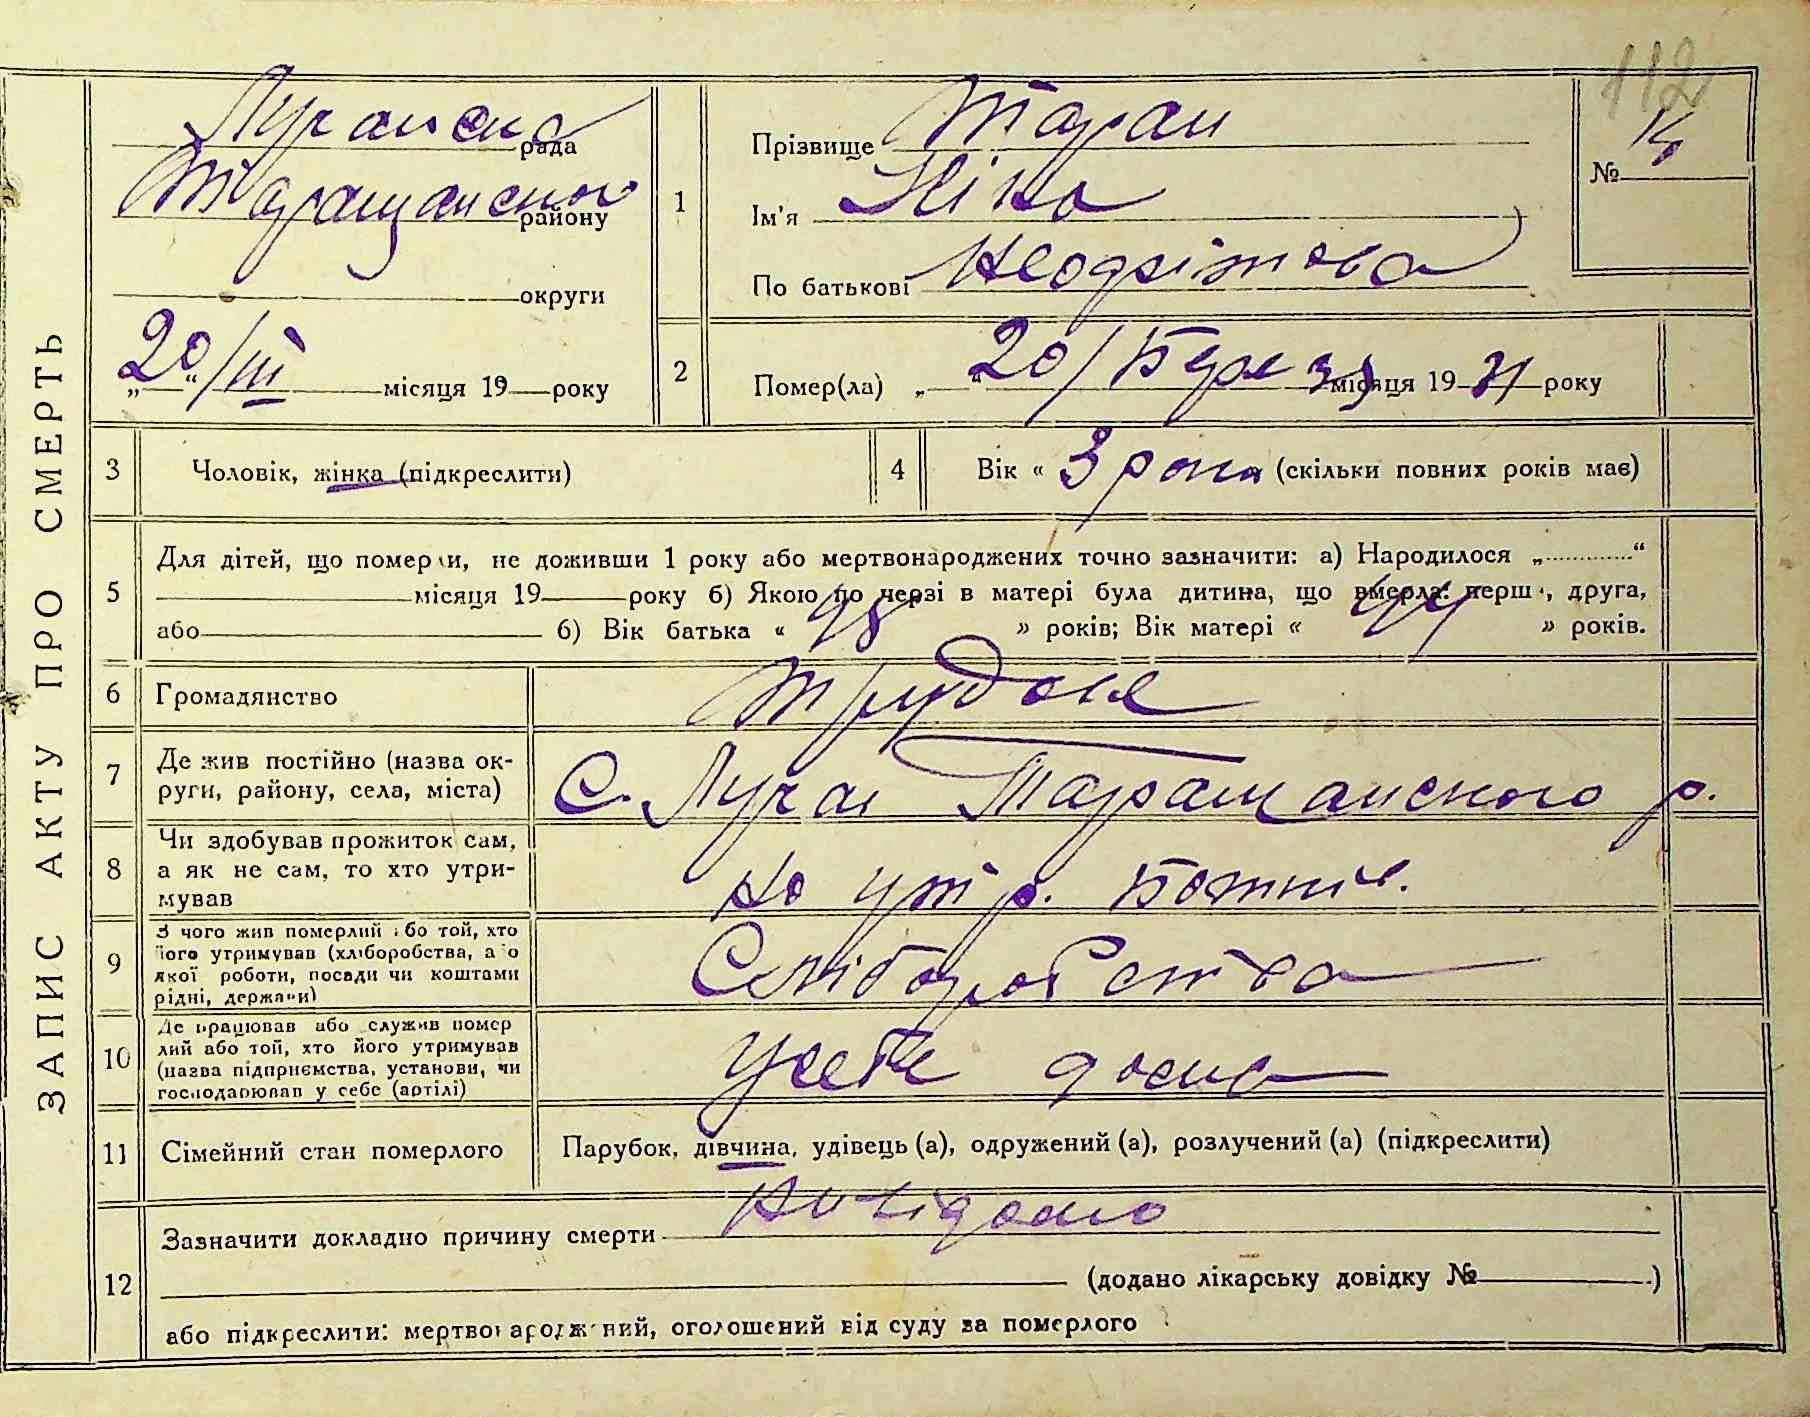 ЗАПИС АКТУ ПРО СМЕРТЬ
112
Лучанська рада
Таращанского району
округи
„20“/III місяця 19 року
1
Прізвище Таран
Ім'я Ніна
По батькові
№ 14
2
Помер(ла) „20“/Березня місяця 1931 року
3
Чоловік, жінка (підкреслити)
4
Вік « 3 роки (скільки повних років має)
5
Для дітей, що померли, не доживши 1 року або мертвонароджених точно зазначити: а) Народилося „............“
місяця 19 року б) Якою по черзі в матері була дитина, що вмерла: перш , друга,
або б) Вік батька « 48 » років; Вік матері « 44 » років.
6
Громадянство
7
Де жив постійно (назва ок-
руги, району, села, міста)
С. Луча Таращанского р.
8
Чи здобував прожиток сам,
а як не сам, то хто утри-
мував
на утр. батьків.
9
З чого жив померлий або той, хто
його утримував (хліборобства, або
якої роботи, посади чи коштами
рідні, держави)
Хліборобства
10
Де працював або служив помер
лий або той, хто його утримував
(назва підприємства, установи, чи
господарював у себе (артілі)
У себе дома
11
Сімейний стан померлого
Парубок, дівчина, удівець (а), одружений (а), розлучений (а) (підкреслити)
12
Зазначити докладно причину смерти Невідомо
(додано лікарську довідку № .)
або підкреслити: мертвонароджений, оголошений від суду за померлого